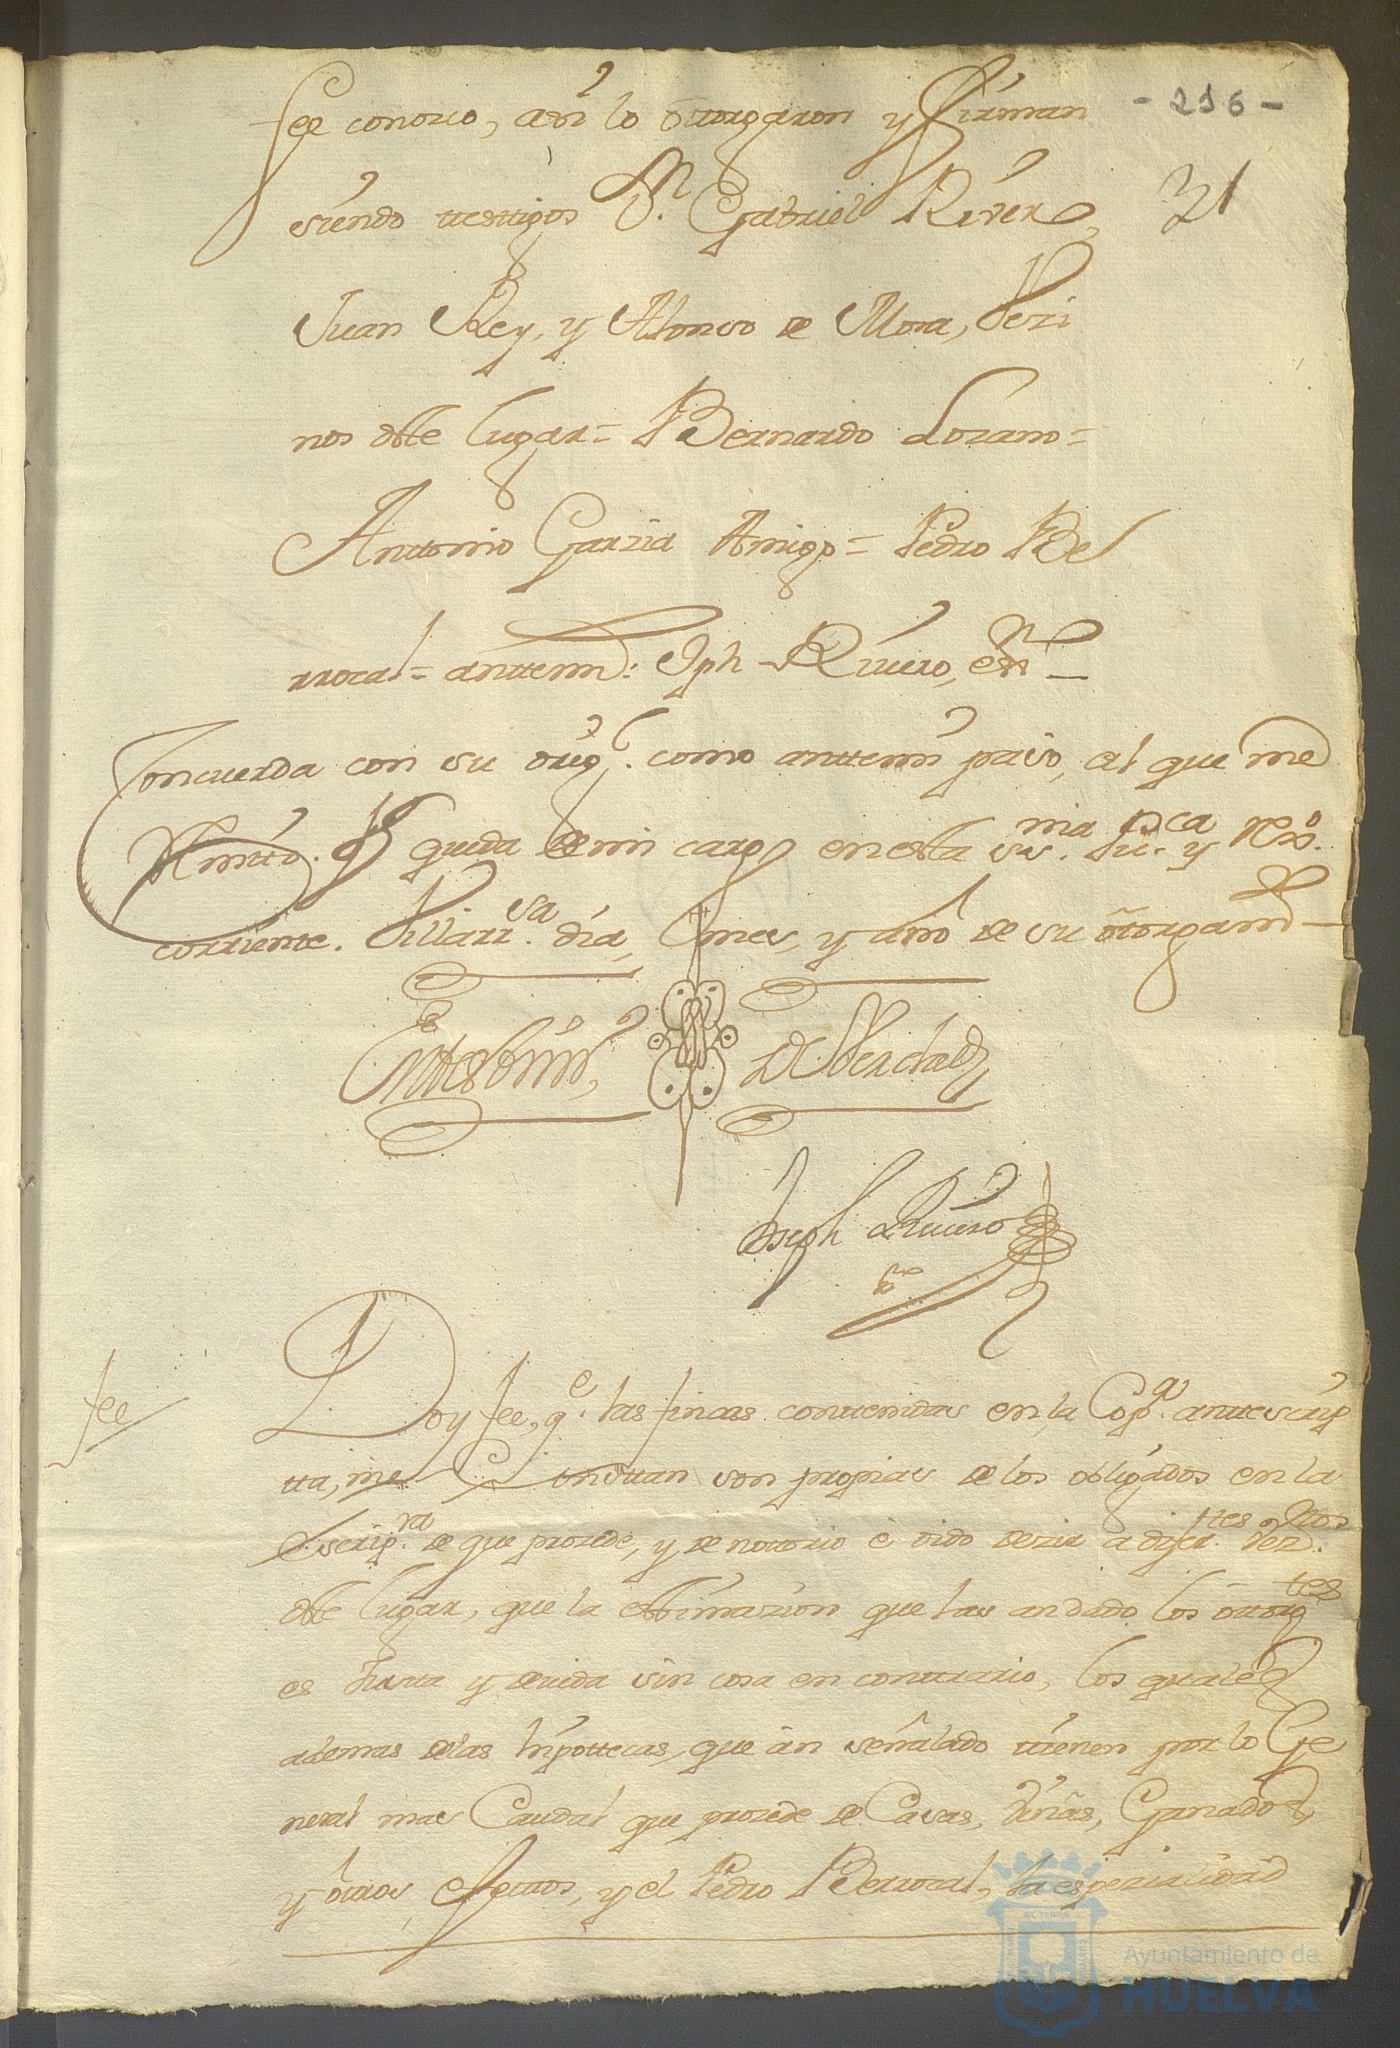 fee conosco, assi lo ōttorgaron y firman
- 216 -
siendo ttesttigos Dn. Gabriel River,
31
Juan Rey, y Alonso de Mora, Vezi
nos deste lugar = Bernardo Lozano =
Anttonio Garzia Amigo = Pedro Be
rrocal = anttemi: Jph Rivero, essno
Concuerda con su orig.l como anttemi paso, al que me
Remito. q queda de mi cargo en esta ss.ma pu.ca y Rexo.
corriente. Villarr.sa dia, mes, y año de su ōtorgamto
En ttestimo de Verdad
Joseph Rivero
sno
fee
Doy fee, q.e las fincas conttenidas en la Cop.a anttescrip
tta, me Consttan son propias de los obligados en la
Escrip.ra de que prozede, y de nottorio è oido dezir a difer.tes vez.nos
deste lugar, que la estimazion que las an dado los ottorgtes
es justta y devida sin cosa en conttrario, los quales
ademas de las hipottecas, que àn señalado tienen por lo Ge
neral mas Caudal que prozede de Casas, Viñas, Ganados,
y ōttros efecttos, y el Pedro Berrocal, la espezialidad
Ayuntamiento de
HUELVA